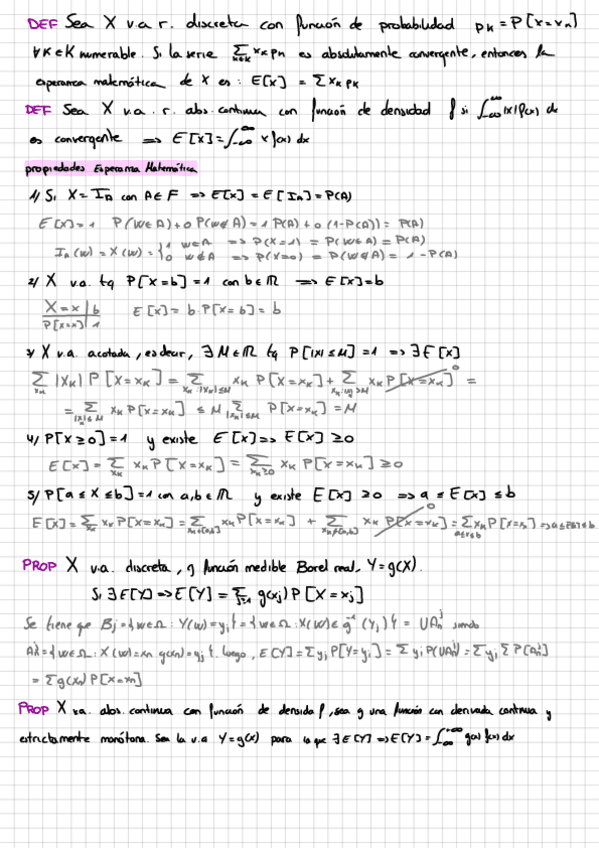 DEF Sea X v.a r. discreta con función de probabilidad pₖ = P[X=xₙ]
∀k∈K numerable. Si la serie Σ_{k∈K} xₖpₙ es absolutamente convergente, entonces la
esperanza matemática de X es: E[X] = Σxₖpₖ
DEF Sea X v.a. r. abs. continua con función de densidad f si ∫_{-∞}^{∞} |x|f(x) dx
es convergente ⟹ E[X]=∫_{-∞}^{∞} x f(x) dx
propiedades Esperanza Matemática
1/ Si X=I_A con A∈F ⟹ E[X] = E[I_A] = P(A)
E[X]=1 P(W∈A)+0 P(W∉A)=1 P(A)+0(1-P(A))= P(A)
I_A(w)=X(w)={1 w∈A ⟹ P(X=1) = P(W∈A)=P(A)
0 w∉A ⟹ P(X=0) = P(W∉A) = 1-P(A)
2/ X v.a. tq P[X=b]=1 con b∈ℝ ⟹ E[X]=b
X=x | b E[X]= b·P[X=b] = b
P[X=x] | 1
3/ X v.a. acotada, es decir, ∃M∈ℝ tq P[|X|≤M]=1 ⟹ ∃E[X]
Σ_{xₖ} |Xₖ| P[X=xₖ] = Σ_{xₖ:|xₖ|≤M} xₖ P[X=xₖ] + Σ_{xₖ:|xₖ|>M} xₖ P[X=xₖ] 0 =
= Σ_{|x|≤M} xₖ P[X=xₖ] ≤ M Σ_{|x|≤M} P[X=xₖ] = M
4/ P[X≥0]=1 y existe E[X] ⟹ E[X] ≥0
E[X]= Σ_{xₖ} xₖ P[X=xₖ] = Σ_{xₖ≥0} xₖ P[X=xₖ] ≥0
5/ P[a≤X≤b]=1 con a,b∈ℝ y existe E[X] ≥0 ⟹ a≤E[X]≤b
E[X]=Σ_{xₖ} xₖP[X=xₖ]=Σ_{xₖ∈[a,b]} xₖP[X=xₖ] + Σ_{xₖ∉[a,b]} xₖ P[X=xₖ] 0 = Σ_{a≤x≤b} xₖP[X=xₖ] ⟹ a≤E[X]≤b
PROP X v.a. discreta, g función medible Borel real, Y=g(X).
Si ∃E[Y] ⟹ E[Y] = Σ_{j≥1} g(xⱼ) P[X=xⱼ]
Se tiene que Bⱼ={w∈Ω: Y(w)=yⱼ}={w∈Ω: X(w)∈g⁻¹(yⱼ)} = ∪Aₙʲ siendo
Aₙʲ={w∈Ω: X(w)=xₙ g(xₙ)=yⱼ}. luego, E[Y]=Σyⱼ P[Y=yⱼ]=Σyⱼ P(∪Aₙʲ)=Σyⱼ ΣP[Aₙʲ]
= Σg(xₙ)P[X=xₙ]
PROP X v.a. abs. continua con función de densida f, sea g una función con derivada continua y
estrictamente monótona. Sea la v.a Y=g(X) para la que ∃E[Y] ⟹ E[Y]=∫_{-∞}^{+∞} g(x) f(x) dx